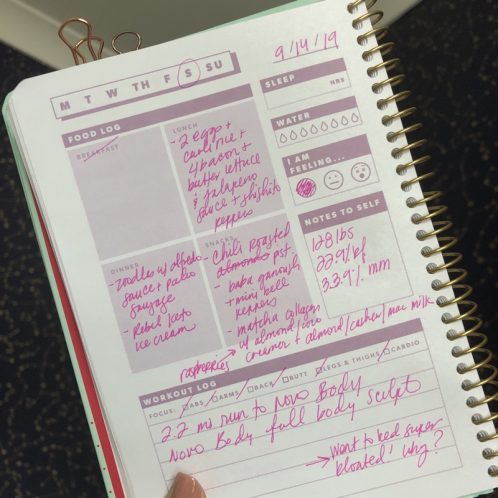 9/14/19
M T W TH F S SU
SLEEP
HRS
WATER
I AM
FEELING...
FOOD LOG
BREAKFAST
LUNCH
- 2 eggs +
cauli rice +
4 bacon +
butter lettuce
& jalapeño
sauce + shishito
peppers
DINNER
- zoodles w/ alfredo
sauce + paleo
sausage
- Rebel Keto
ice cream
SNACKS
Chili roasted
almonds pst
- baba ganoush
+ mini bell
peppers
- matcha collagen
w/ almond/coco
creamer + almond/cashew/mac milk
raspberries
NOTES TO SELF
128 lbs
22.9% bf
33.9% mm
WORKOUT LOG
FOCUS: ABS ARMS BACK BUTT LEGS & THIGHS CARDIO
2.2 mi run to Novo Body
Novo Body full body sculpt
→ Went to bed super
bloated! Why?